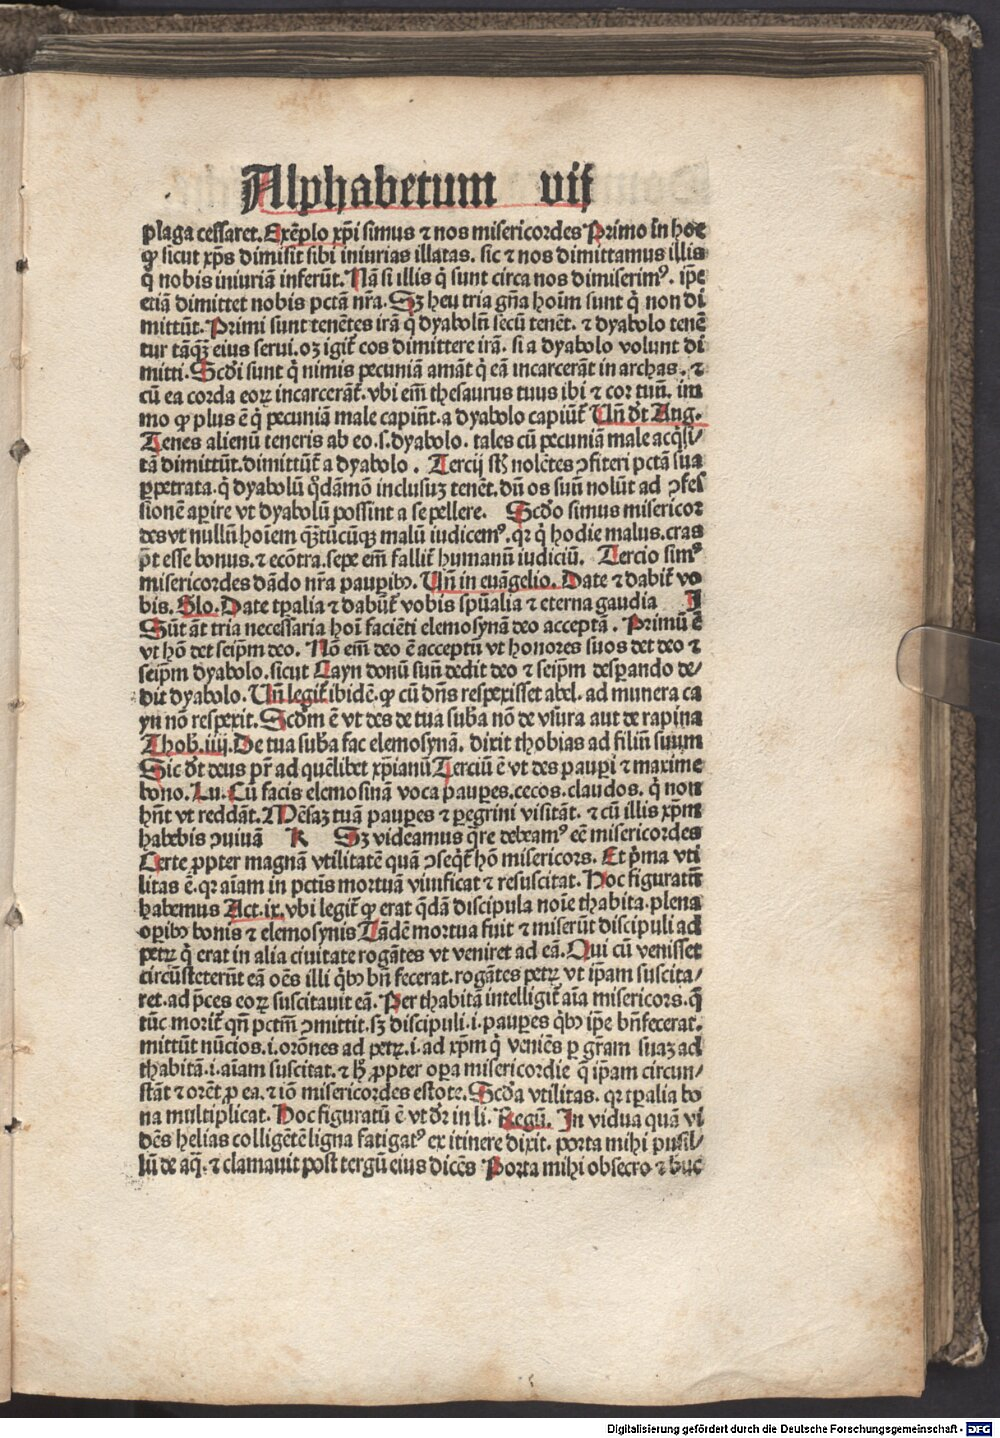 Alphabetum vij
plaga cessaret. Exēplo xp̄i simus ⁊ nos misericordes Primo in hoc
ꝙ sicut xp̄s dimisit sibi iniurias illatas. sic ⁊ nos dimittamus illis
q̇ nobis iniuriā inferūt. Nā si illis q̇ sunt circa nos dimiserimꝰ. ip̄e
etiā dimittet nobis pctā nr̄a. Sꝫ heu tria gn̄a hoīm sunt q̇ non di
mittūt. Primi sunt tenētes irā q̇ dyabolū secū tenēt. ⁊ dyabolo tenē
tur tāqꝫ eius serui. oꝫ igit̄ eos dimittere irā. si a dyabolo volunt di
mitti. Scd̄i sunt q̇ nimis pecuniā amāt q̇ eā incarcerāt in archas. ⁊
cū ea corda eoꝝ incarcerāt̄. vbi em̄ thesaurus tuus ibi ⁊ cor tuū. im
mo ꝙ plus ē q̇ pecuniā male capiūt. a dyabolo capiūt̄ Vn̄ dt̄ Aug.
Tenes alienū teneris ab eo .s. dyabolo. tales cū pecuniā male acq̇si/
tā dimittūt. dimittūt̄ a dyabolo. Tercij sūt nolētes ꝯfiteri pctā sua
ꝑpetrata. q̇ dyabolū q̇dāmō inclusuꝫ tenēt. dū os suū nolūt ad ꝯfes
sionē aperire vt dyabolū possint a se pellere. Scd̄o simus misericor
des vt nullū hoīem qꝫtūcūqꝫ malū iudicemꝰ. qꝛ q̇ hodie malus. cras
pōt esse bonus. ⁊ ecōtra. sepe em̄ fallit̄ humanū iudiciū. Tercio simꝰ
misericordes dādo nr̄a pauꝑibꝰ. Vn̄ in euāgelio. Date ⁊ dabit̄ vo
bis. Glo. Date tꝑalia ⁊ dabūt̄ vobis spūalia ⁊ eterna gaudia I
Sūt āt tria necessaria hoī faciēti elemosynā deo acceptā. Primū ē
vt hō det seip̄m deo. Nō em̄ deo ē acceptū vt honores suos det deo ⁊
seip̄m dyabolo. sicut Cayn donū suū dedit deo ⁊ seip̄m desperando de/
dit dyabolo. Vn̄ legit̄ ibidē. ꝙ cū dn̄s respexisset abel. ad munera ca
yn nō respexit. Scd̄m ē vt des de tua sub̄a nō de vsura aut de rapina
Thob. iiij. De tua sub̄a fac elemosynā. dixit thobias ad filiū suum
Sic dt̄ deus pr̄ ad quēlibet xp̄ianū Terciū ē vt des pauꝑi ⁊ maxime
bono. Lu. Cū facis elemosinā voca pauꝑes. cecos. claudos. q̇ non
hn̄t vt reddāt. Mēsaꝫ tuā pauꝑes ⁊ ꝑegrini visitāt. ⁊ cū illis xp̄m
habebis ꝯuiuā K Sꝫ videamus q̄re debeamꝰ eē misericordes
Certe ꝓpter magnā vtilitatē quā ꝯseq̇t̄ hō misericors. Et p̄ma vti
litas ē. qꝛ aīam in pctīs mortuā viuificat ⁊ resuscitat. Hoc figuratū
habemus Act. ix. vbi legit̄ ꝙ erat q̇dā discipula noīe thabita. plena
oꝑibꝰ bonis ⁊ elemosynis Tādē mortua fuit ⁊ miserūt discipuli ad
petꝝ q̇ erat in alia ciuitate rogātes vt veniret ad eā. Qui cū venisset
circūsteterūt eā oēs illi q̇bꝰ bn̄ fecerat. rogātes petꝝ vt ip̄am suscita/
ret. ad p̄ces eoꝝ suscitauit eā. Per thabitā intelligit̄ aīa misericors. q̄
tūc morit̄ qn̄ pctm̄ ꝯmittit. sꝫ discipuli .i. pauꝑes q̇bꝰ ip̄e bn̄fecerat.
mittūt nūcios .i. orōnes ad petꝝ .i. ad xp̄m q̇ veniēs ꝑ gr̄am suaꝫ ad
thabitā .i. aīam suscitat. ⁊ h̄ ꝓpter oꝑa misericordie q̄ ip̄am circun/
stāt ⁊ orēt ꝓ ea. ⁊ iō misericordes estote. Scd̄a vtilitas. qꝛ tꝑalia bo
na multiplicat. Hoc figuratū ē vt dr̄ in li. Regū. In vidua quā vi
dēs helias colligētē ligna fatigatꝰ ex itinere dixit. porta mihi pusil/
lū de aq̄. ⁊ clamauit post tergū eius dicēs Porta mihi obsecro ⁊ buc
Digitalisierung gefördert durch die Deutsche Forschungsgemeinschaft - DFG